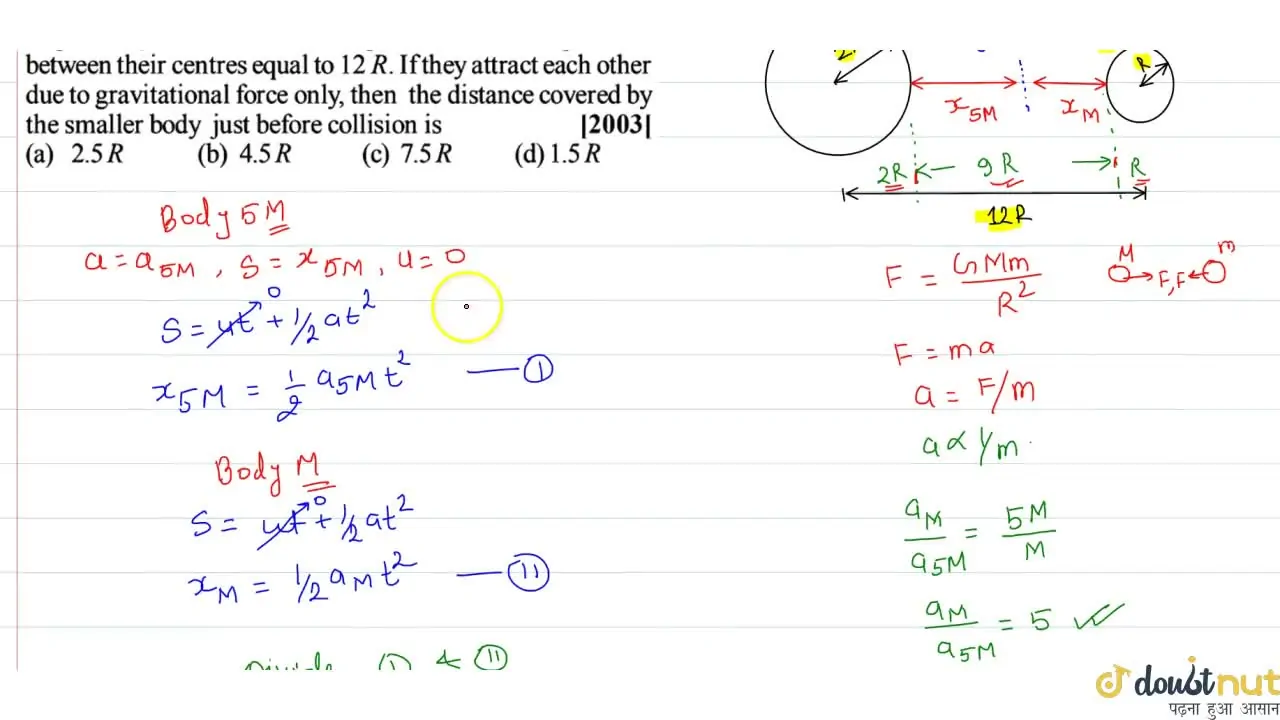 between their centres equal to 12 R. If they attract each other
due to gravitational force only, then the distance covered by
the smaller body just before collision is [2003]
(a) 2.5 R (b) 4.5 R (c) 7.5 R (d) 1.5 R
R
x5M xM
2R 9R R
12R
Body 5M
a = a5M , s = x5M , u = 0
S = ut + 1/2 at²
0
x5M = 1/2 a5M t² — I
Body M
S = ut + 1/2 at²
0
xM = 1/2 aM t² — II
Divide I & II
F = GMm/R²
M m
F, F
F = ma
a = F/m
a ∝ 1/m
aM/a5M = 5M/M
aM/a5M = 5
doubtnut
पढ़ना हुआ आसान